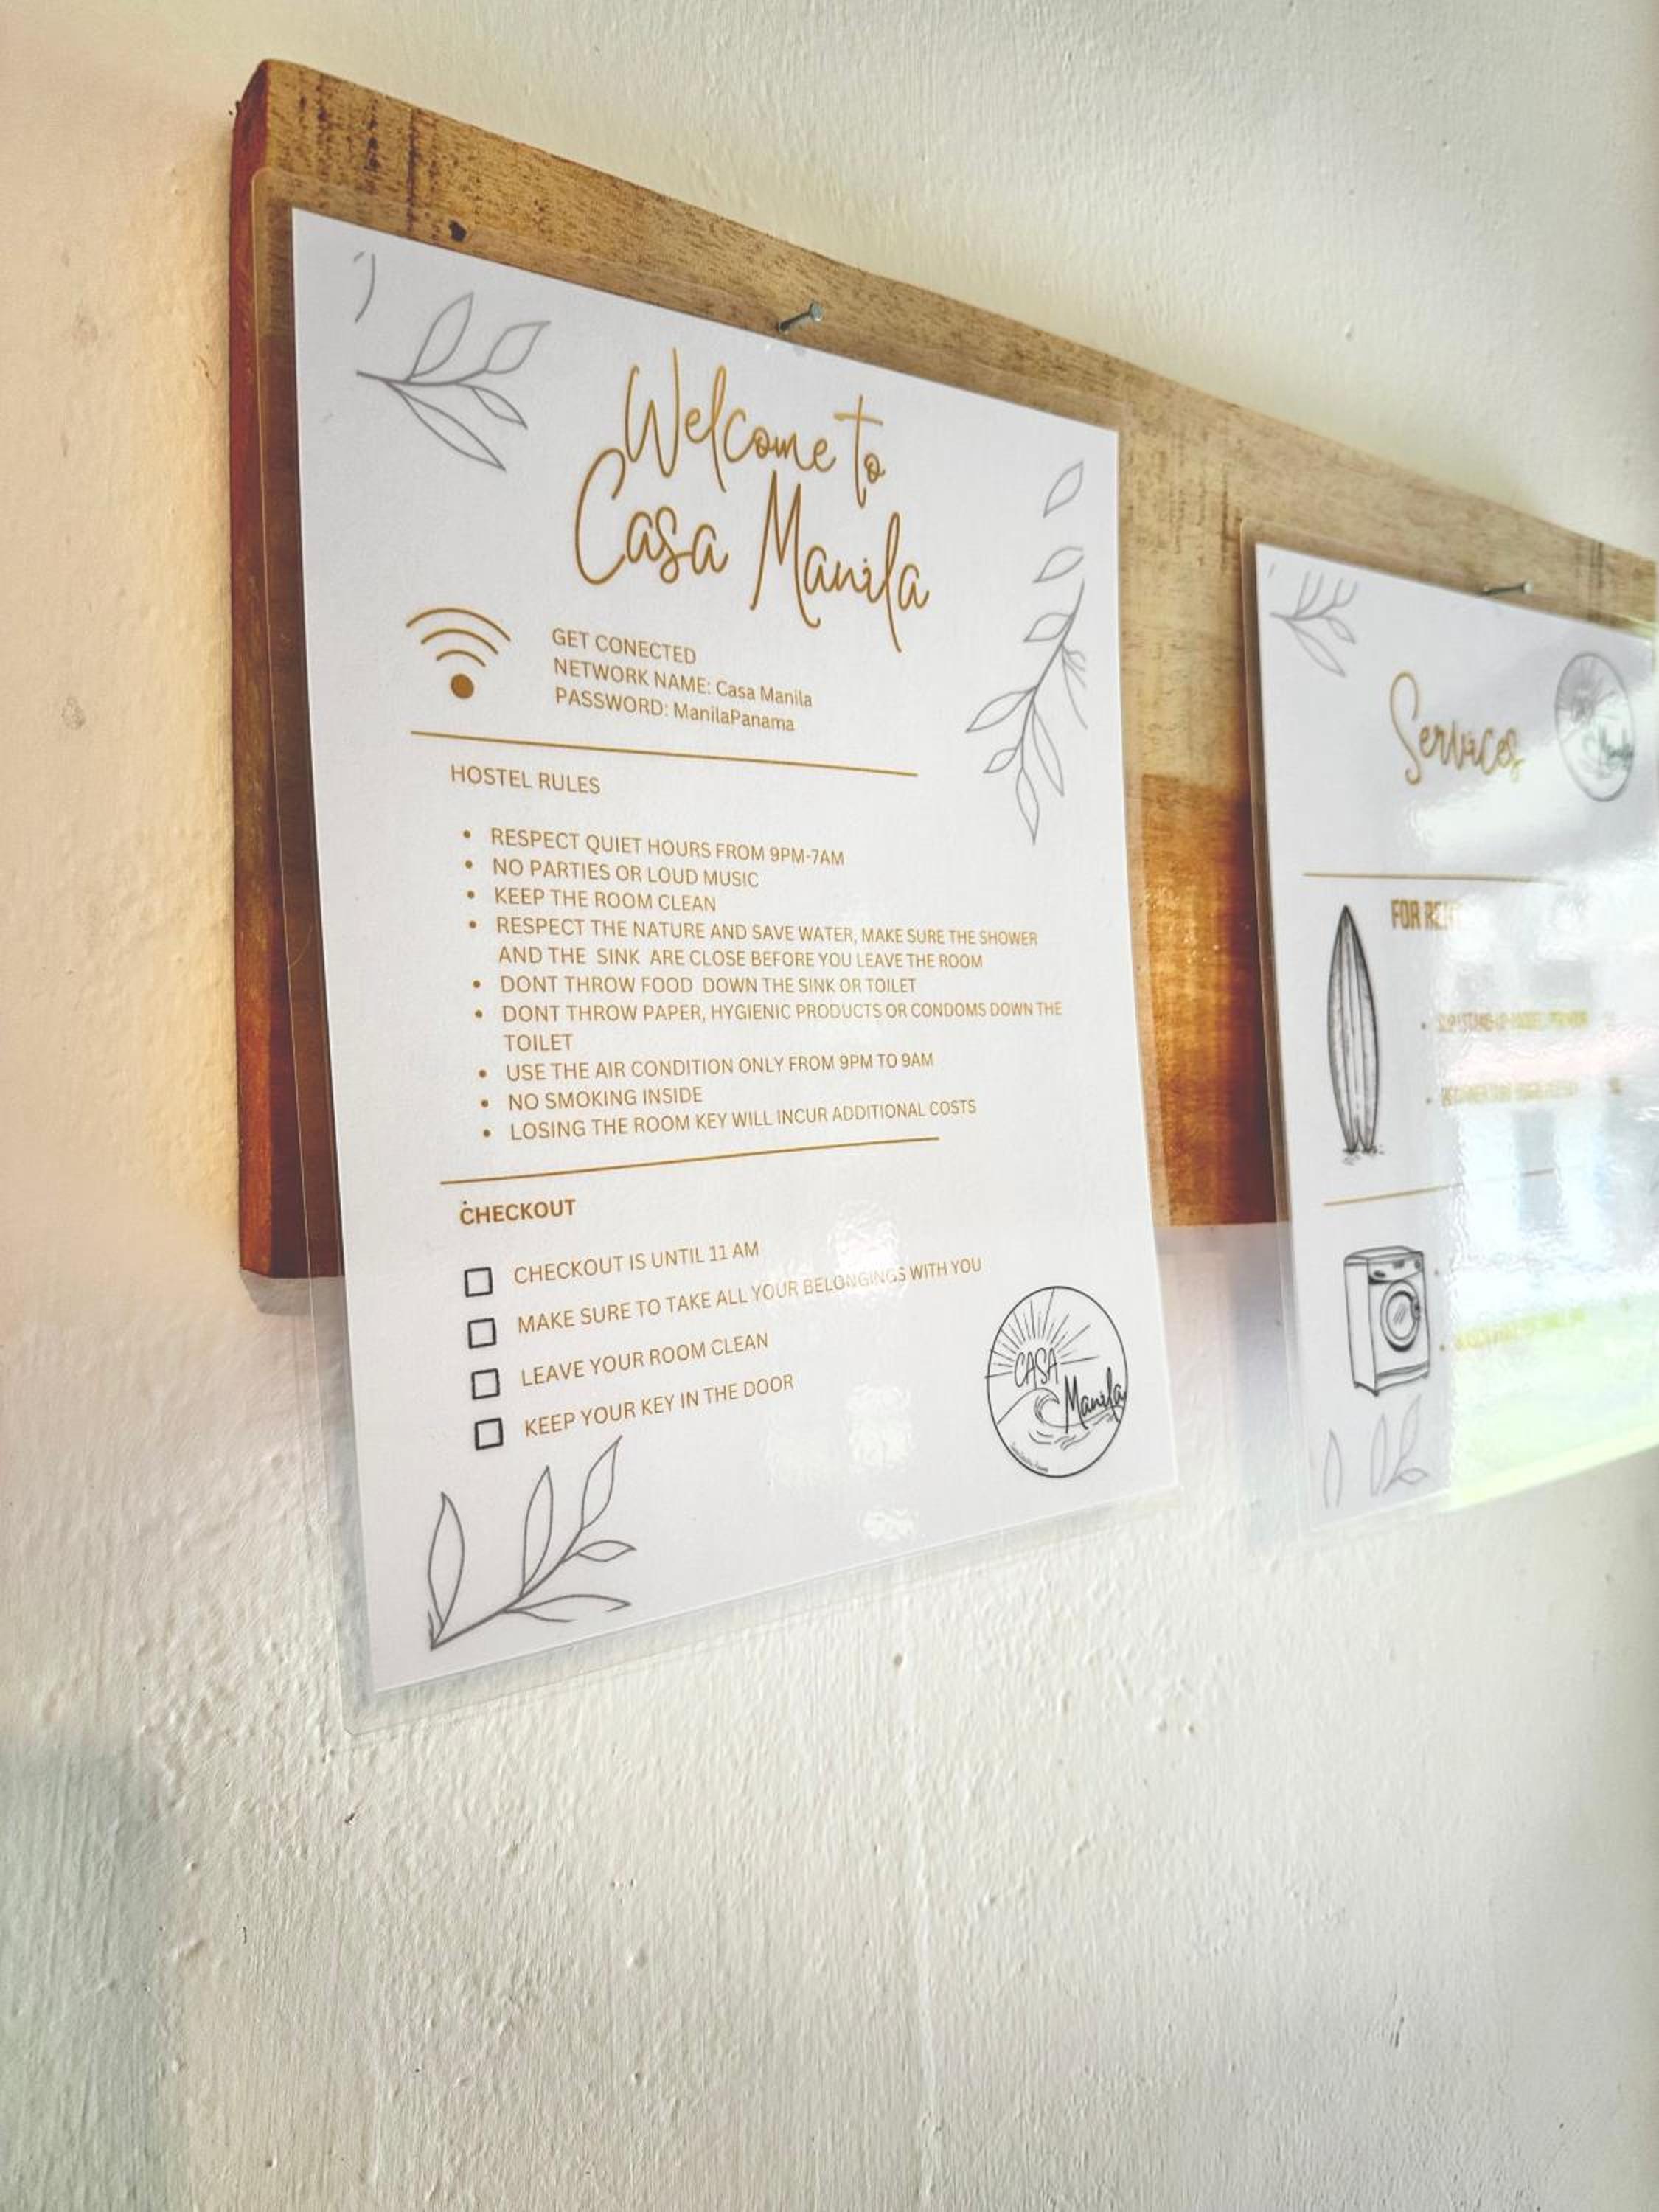 Welcome to
Casa Manila
GET CONECTED
NETWORK NAME: Casa Manila
PASSWORD: ManilaPanama
HOSTEL RULES
• RESPECT QUIET HOURS FROM 9PM-7AM
• NO PARTIES OR LOUD MUSIC
• KEEP THE ROOM CLEAN
• RESPECT THE NATURE AND SAVE WATER, MAKE SURE THE SHOWER
AND THE SINK ARE CLOSE BEFORE YOU LEAVE THE ROOM
• DONT THROW FOOD DOWN THE SINK OR TOILET
• DONT THROW PAPER, HYGIENIC PRODUCTS OR CONDOMS DOWN THE
TOILET
• USE THE AIR CONDITION ONLY FROM 9PM TO 9AM
• NO SMOKING INSIDE
• LOSING THE ROOM KEY WILL INCUR ADDITIONAL COSTS
CHECKOUT
CHECKOUT IS UNTIL 11 AM
MAKE SURE TO TAKE ALL YOUR BELONGINGS WITH YOU
LEAVE YOUR ROOM CLEAN
KEEP YOUR KEY IN THE DOOR
CASA
Manila
Services
Manila
FOR RENT